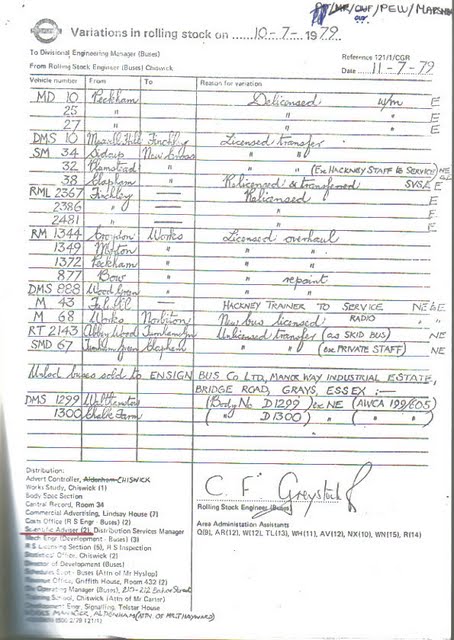 PEW/MARSHA
Variations in rolling stock on 10-7-1979
To Divisional Engineering Manager (Buses)
Reference 121/1/CGR
From Rolling Stock Engineer (Buses) Chiswick
Date 11-7-79
Vehicle number From To Reason for variation
MD 10 Peckham Delicensed w/m E
25 " " " E
27 " " " E
DMS 10 Muswell Hill Finchley Licensed transfer
SM 34 Sidcup New Cross " "
32 Plumstead " " " (Ex HACKNEY STAFF to SERVICE) NE
38 Clapham " Relicensed & transferred SVS&E
RML 2367 Finchley — Relicensed E
2386 " — " E
2481 " — " E
RM 1344 Croydon Works Licensed overhaul
1349 Merton " " "
1372 Peckham " " "
877 Bow " " repaint
DMS 888 Wood Green " " "
M 43 — HACKNEY TRAINER TO SERVICE NE&E
M 68 Works Norbiton New bus licensed RADIO " "
RT 2143 Abbey Wood Unlicensed transfer (as SKID BUS) NE
SMD 67 Clapham " " (ex PRIVATE STAFF) NE
buses sold to ENSIGN BUS Co LTD, MANOR WAY INDUSTRIAL ESTATE,
BRIDGE ROAD, GRAYS, ESSEX :—
DMS 1299 Walthamstow (Body No D1299) ex NE (AWCA 199/805)
1300 Chalk Farm ( " D1300) " ( " )
Distribution:
Advert Controller, Aldenham CHISWICK
Works Study, Chiswick (1)
Body Spec Section
Central Record, Room 34
Commercial Advertising, Lindsay House (7)
Costs Office (R S Engr - Buses) (2)
Scientific Adviser (2), Distribution Services Manager
Mech Engr (Development - Buses) (3)
R S Licensing Section (5), R S Inspection
Statistics Office, Chiswick (2)
Director of Development (Buses)
Schedules Supt - Buses (Attn of Mr Hyslop)
Revenue Office, Griffith House, Room 432 (2)
Operating Manager (Buses), 210-212 Baker Street
Training School, Chiswick (Attn of Mr Carter)
Development Engr, Signalling, Telstar House
WORKS MANAGER, ALDENHAM (ATTN. OF MR T HAYWARD)
C. F. Greystock
Rolling Stock Engineer (Buses)
Area Administration Assistants
Q(9), AR(12), W(12), TL(13), WH(11), AV(12), NX(10), WN(15), R(14)